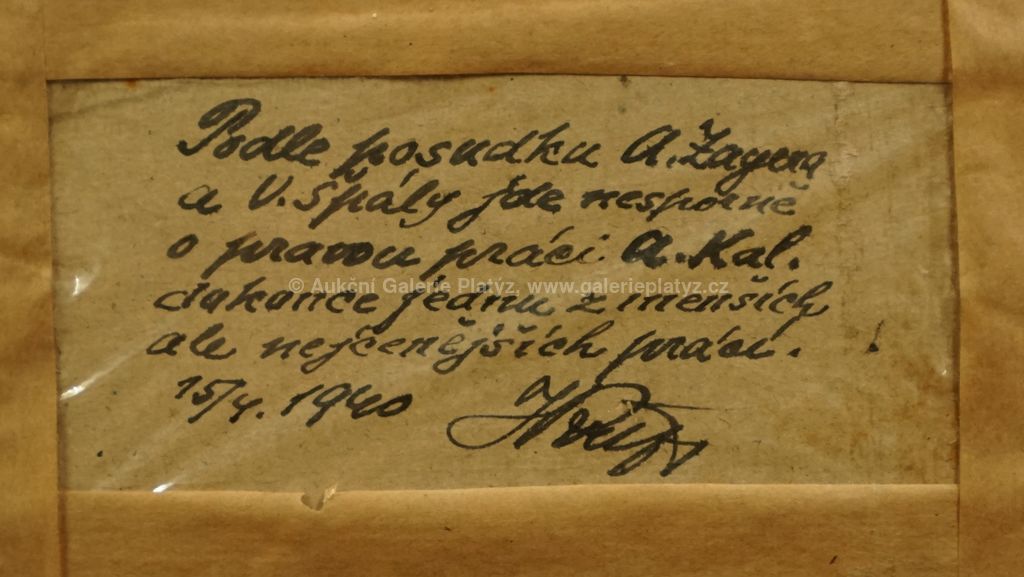 Podle posudku A. Žayma
a V. Špály jde nesporně
o pravou práci A. Kal.
© Aukční Galerie Platýz, www.galerieplatyz.cz
dokonce jednu z menších
ale nejcenějších prácí.
15/4. 1940